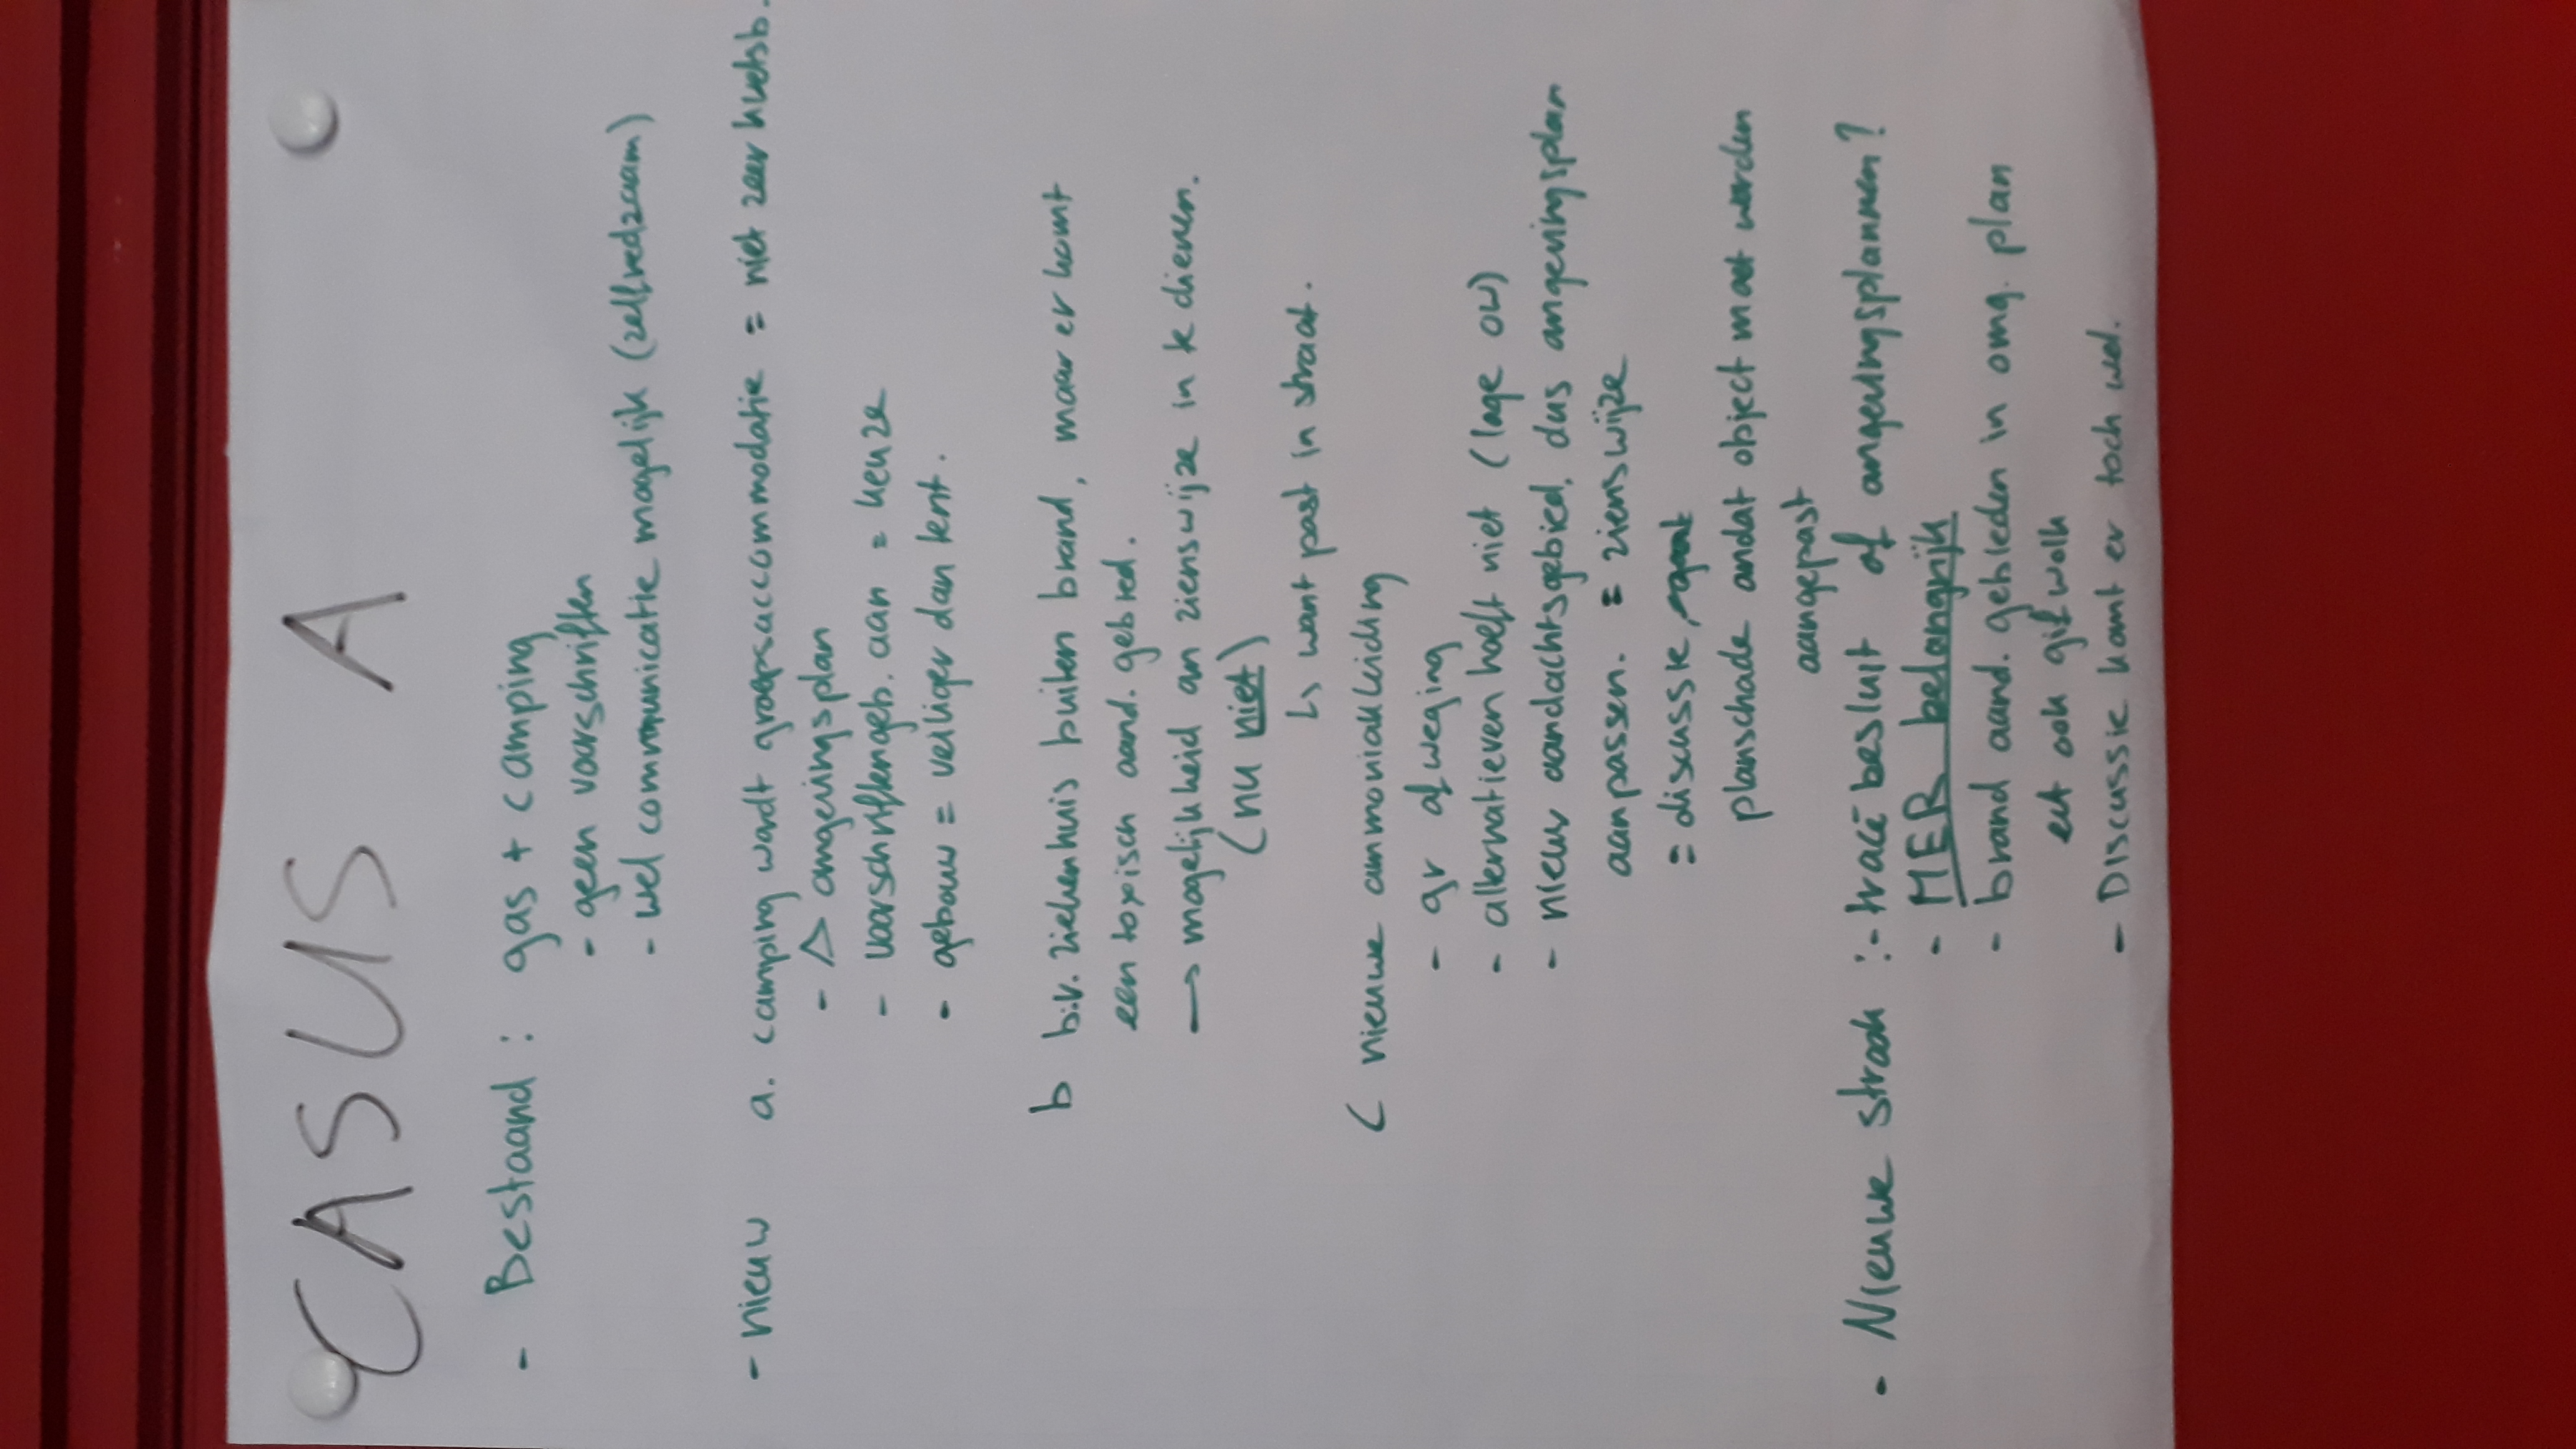 CASUS A
- Bestaand : gas + camping
- geen voorschriften
- wel communicatie mogelijk (zelfredzaam)
- nieuw a. camping wordt groepsaccommodatie = niet zeer kwetsb.
- Δ omgevingsplan
- voorschriftengeb. aan = keuze
- gebouw = veiliger dan tent.
b b.v. ziekenhuis buiten brand, maar er komt
een toxisch aand. gebied.
→ mogelijkheid om zienswijze in te dienen.
(nu niet)
↳ want past in straat.
C nieuwe ammoniakleiding
- gr afweging
- alternatieven hoeft niet (lage OW)
- nieuw aandachtsgebied, dus omgevingsplan
aanpassen. = zienswijze
= discussie,
planschade omdat object moet worden
aangepast
- Nieuwe strook :- tracébesluit of omgevingsplannen?
- MER belangrijk
- brand aand. gebieden in omg. plan
en ook gifwolk
- Discussie komt er toch wel.